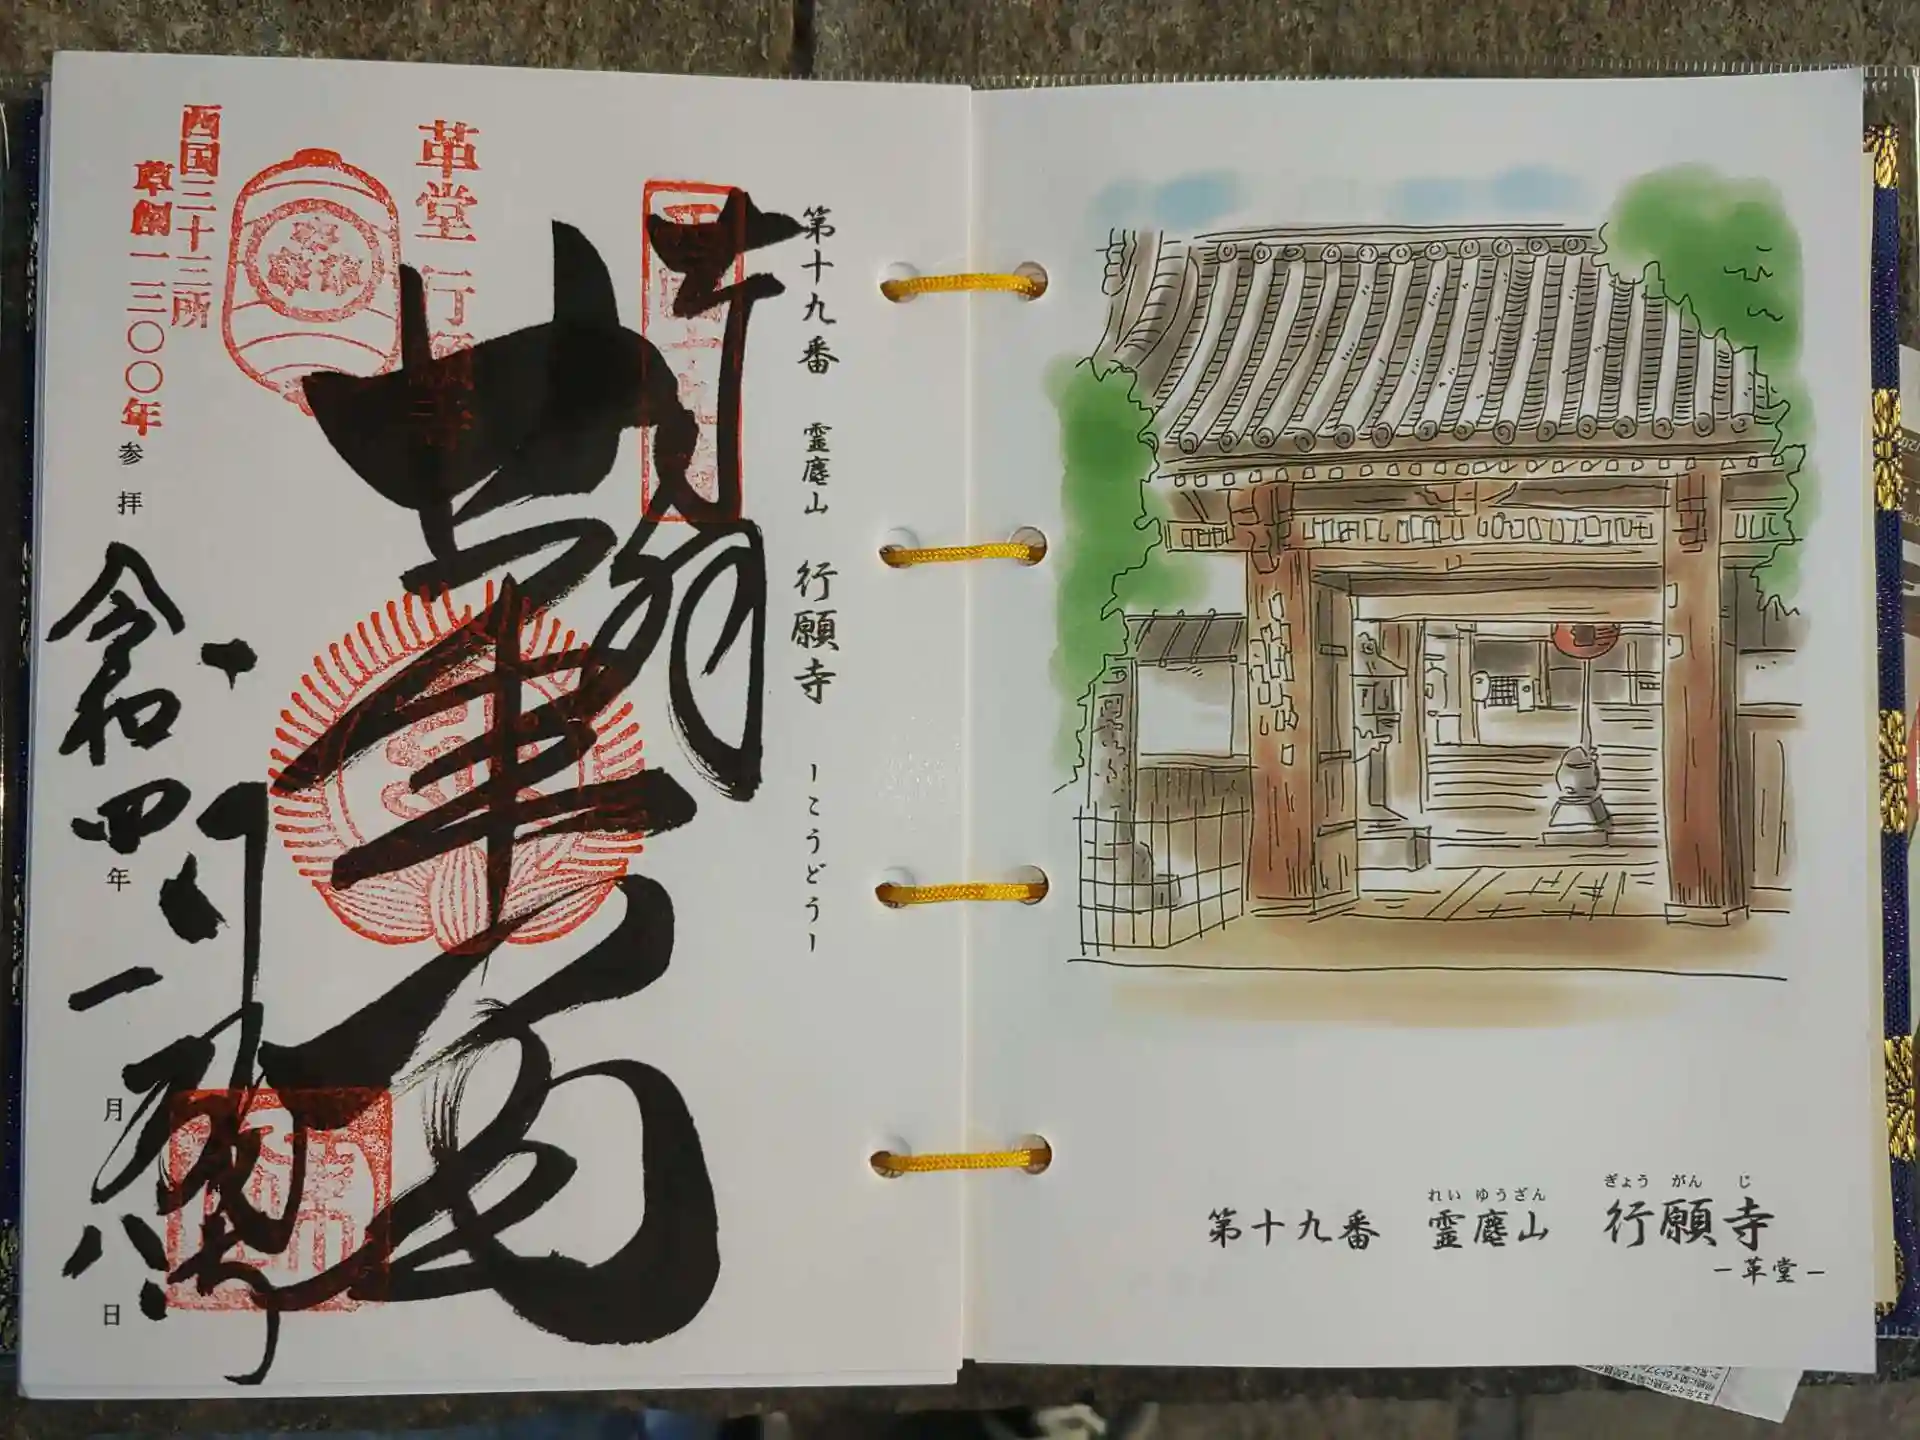 第十九番 霊麀山 行願寺 －こうどう－
奉拝
革堂 行願寺
革堂
行願寺
西国三十三所
草創一三〇〇年
参拝 令和四年一月八日
れいゆうざん
ぎょうがんじ
第十九番 霊麀山 行願寺
－革堂－